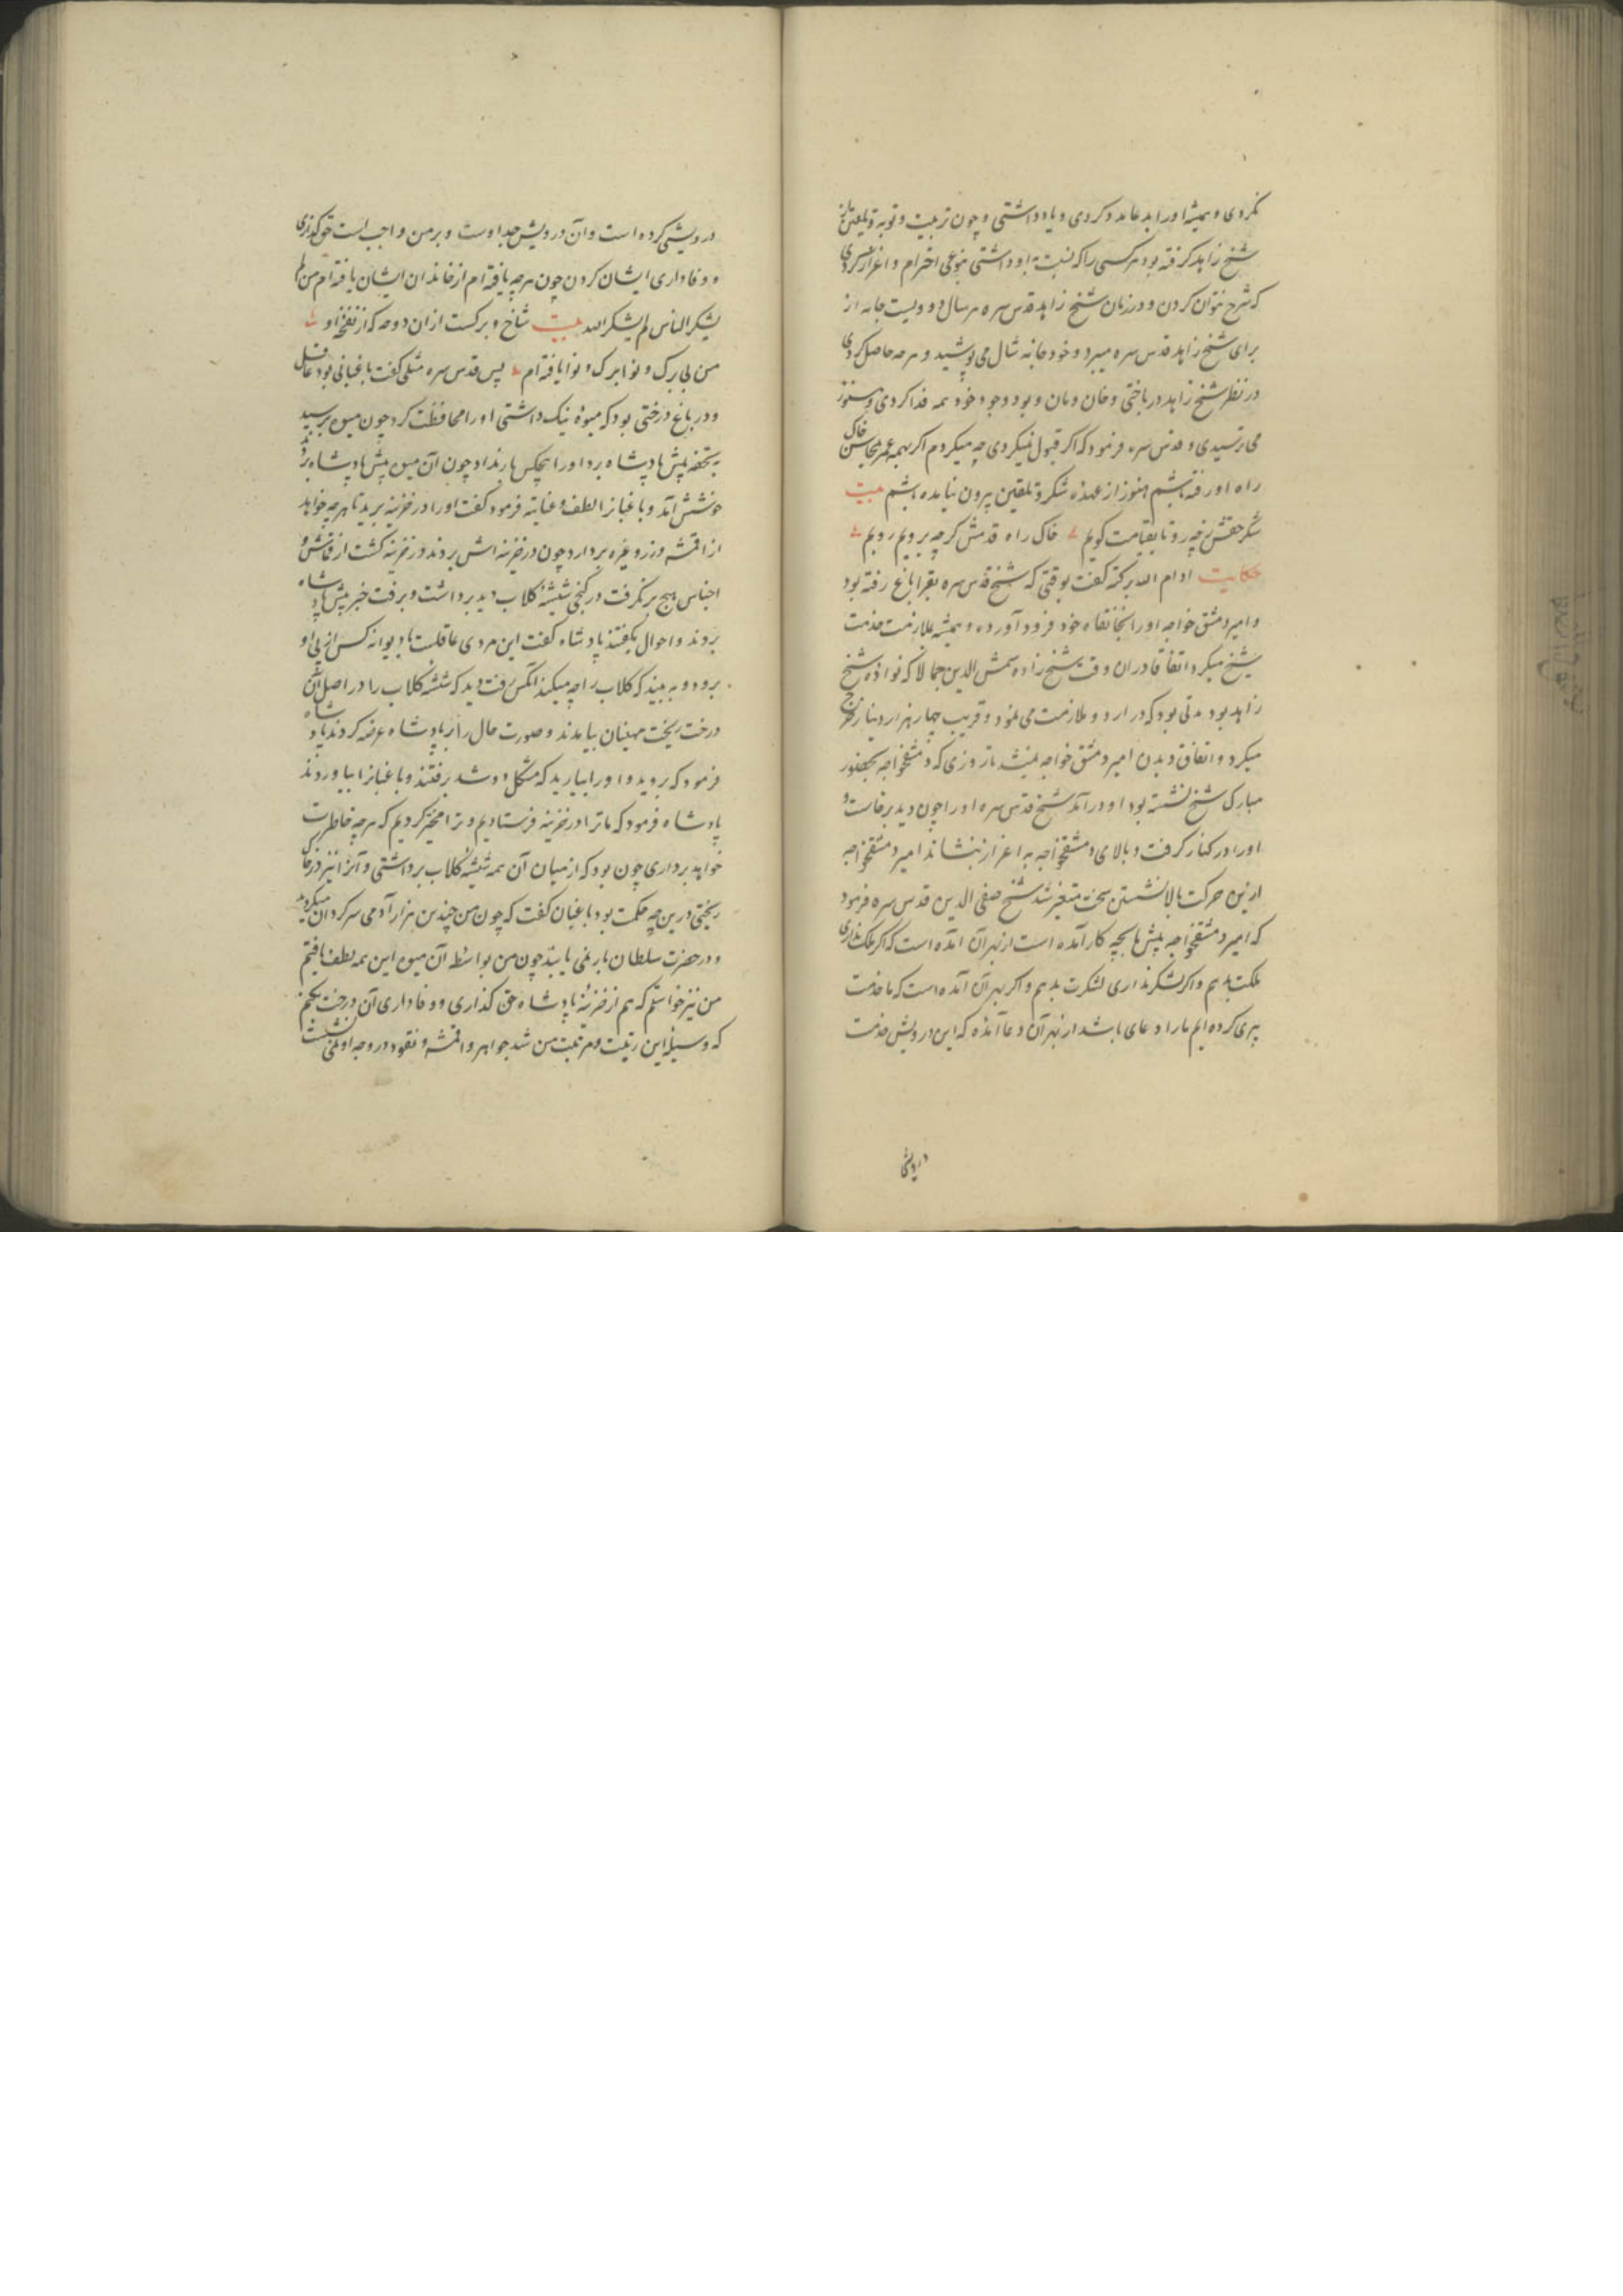 نکردی و همیشه اورا بدعا مدد کردی و یاد داشتی و چون تربیت و توبه و تلقین از
شیخ زاهد گرفته بود هر کسی را که نسبت باو داشتی بنوعی احترام و اعزاز کردی
که شرح نتوان کردن و در زمان شیخ زاهد قدس سره هر سال دویست جامه از
برای شیخ زاهد قدس سره میبرد و خود جامه شال می پوشید و هرچه حاصل کردی
در نظر شیخ زاهد درباختی و خان و مان و بود وجود خود همه فدا کردی و هنوز
می ترسیدی و قدس سره فرمود که اگر قبول نمیکردی چه میکردم اگر بهمه عمر بمحاسن خاک
راه او رفته باشم هنوز از عهده شکر و تلقین بیرون نیامده باشم بیت
شکر حقش زچه رو تا بقیامت گویم خاک راه قدمش گرچه برویم رویم
حکایت ادام الله برکته گفت بوقتی که شیخ قدس سره بقراباغ رفته بود
و امیر دمشق خواجه اورا بخانقاه خود فرود آورده و همیشه بملازمت خدمت
شیخ میکرد اتفاقا دران وقت شیخ زاده شمس الدین جمالا که نواده شیخ
زاهد بود مدتی بود که در اردو ملازمت می نمود و قریب چهار هزار دینار خرج
میکرد و اتفاق دیدن امیر دمشق خواجه نمیشد تا روزی که دمشقخواجه بحضور
مبارک شیخ نشسته بود او درآمد شیخ قدس سره اورا چون دید برخاست و
اورا در کنار گرفت و بالای دمشقخواجه به اعزاز بنشاند امیر دمشقخواجه
ازین حرکت بالا نشستن سخت متغیر شد شیخ صفی الدین قدس سره فرمود
که امیر دمشقخواجه پیش ما بچه کار آمده است از بهر آن آمده است که اگر ملک نداری
ملکت بدهم و اگر لشکر نداری لشکرت بدهم و اگر بهر آن آمده است که ما خدمت
پیری کرده ایم ما را دعای باشد از بهر آن دعا آمده که این درویش خدمت
درویشی
درویشی کرده است و آن درویش جد اوست و بر من واجب است حق گذاری
و وفاداری ایشان کردن چون هرچه یافته ام از خاندان ایشان یافته ام من لم
یشکر الناس لم یشکر الله بیت شاخ و برگست ازان دوحه که از نفخه او
من بی برگ و نوا برگ و نوا یافته ام پس قدس سره مثلی گفت باغبانی بود عاقل
و در باغ درختی بود که میوه نیک داشتی اورا محافظت کرد چون میوه برسید
بتحفه پیش پادشاه برد اورا هیچکس بار نداد چون آن میوه پیش پادشاه برد
خوشش آمد و باغبانرا لطف و عنایت فرمود گفت اورا در خزینه برید تا هرچه خواهد
از اقمشه و زر و غیره بردارد چون در خزینه اش بردند در خزینه گشت از قماش و
اجناس هیچ برنگرفت در کنجی شیشه گلاب دید برداشت و برفت خبر پیش پادشاه
بردند و احوال بگفتند پادشاه گفت این مردی عاقلست یا دیوانه کسی از پی او
برود و به بیند که گلاب را چه میکند آنکس رفت دید که شیشه گلاب را در اصل آن
درخت ریخت منهیان بیامدند و صورت حال را بر پادشاه عرضه کردند پادشاه
فرمود که بروید و اورا بیارید که مشکل دو شد برفتند و باغبانرا بیاوردند
پادشاه فرمود که ما ترا در خزینه فرستادیم و ترا مخیر کردیم که هرچه خاطرت
خواهد برداری چون بود که از میان آن همه شیشه گلاب برداشتی و آنرا نیز در خاک
ریختی درین چه حکمت بود باغبان گفت که چون من چندین هزار آدمی سرگردان میگردند
و در حضرت سلطان بار نمی یابند چون من بواسطه آن میوه این همه لطف یافتم
من نیز خواستم که هم از خزینه پادشاه حق گذاری و وفاداری آن درخت بکنم
که وسیله این رتبت و مرتبت من شد جواهر و اقمشه و نقود در وجه او نمی نشست